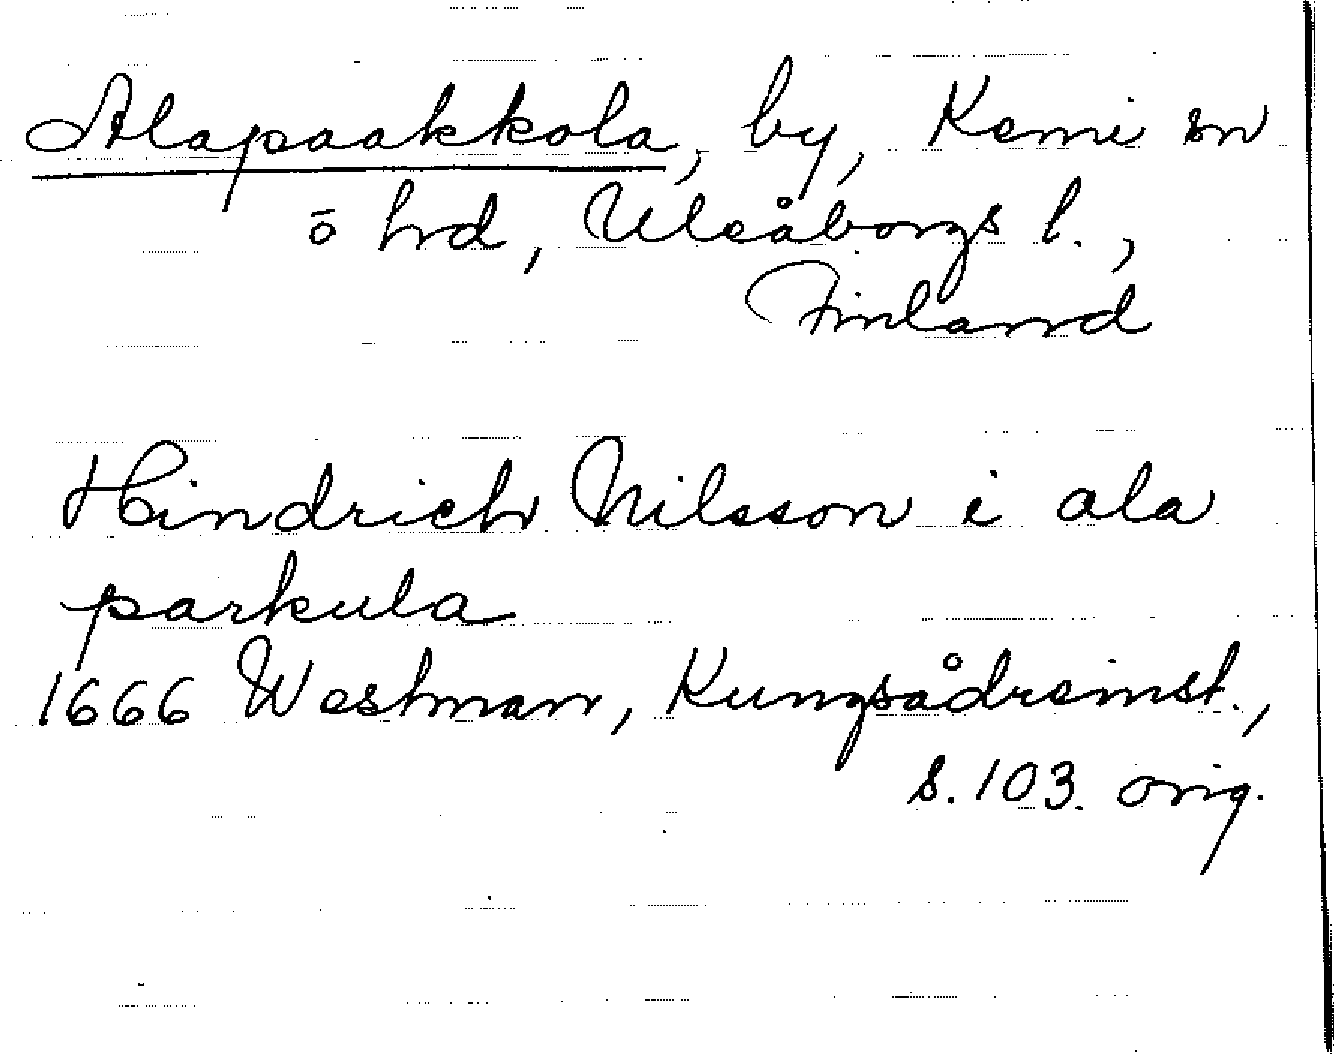 Alapaakkola, by, Kemi sn
ō hrd, Uleåborgs l.,
Finland
Hindrich Nilsson i ala
parkula
1666 Westman, Kungsådreinst.,
s. 103. orig.